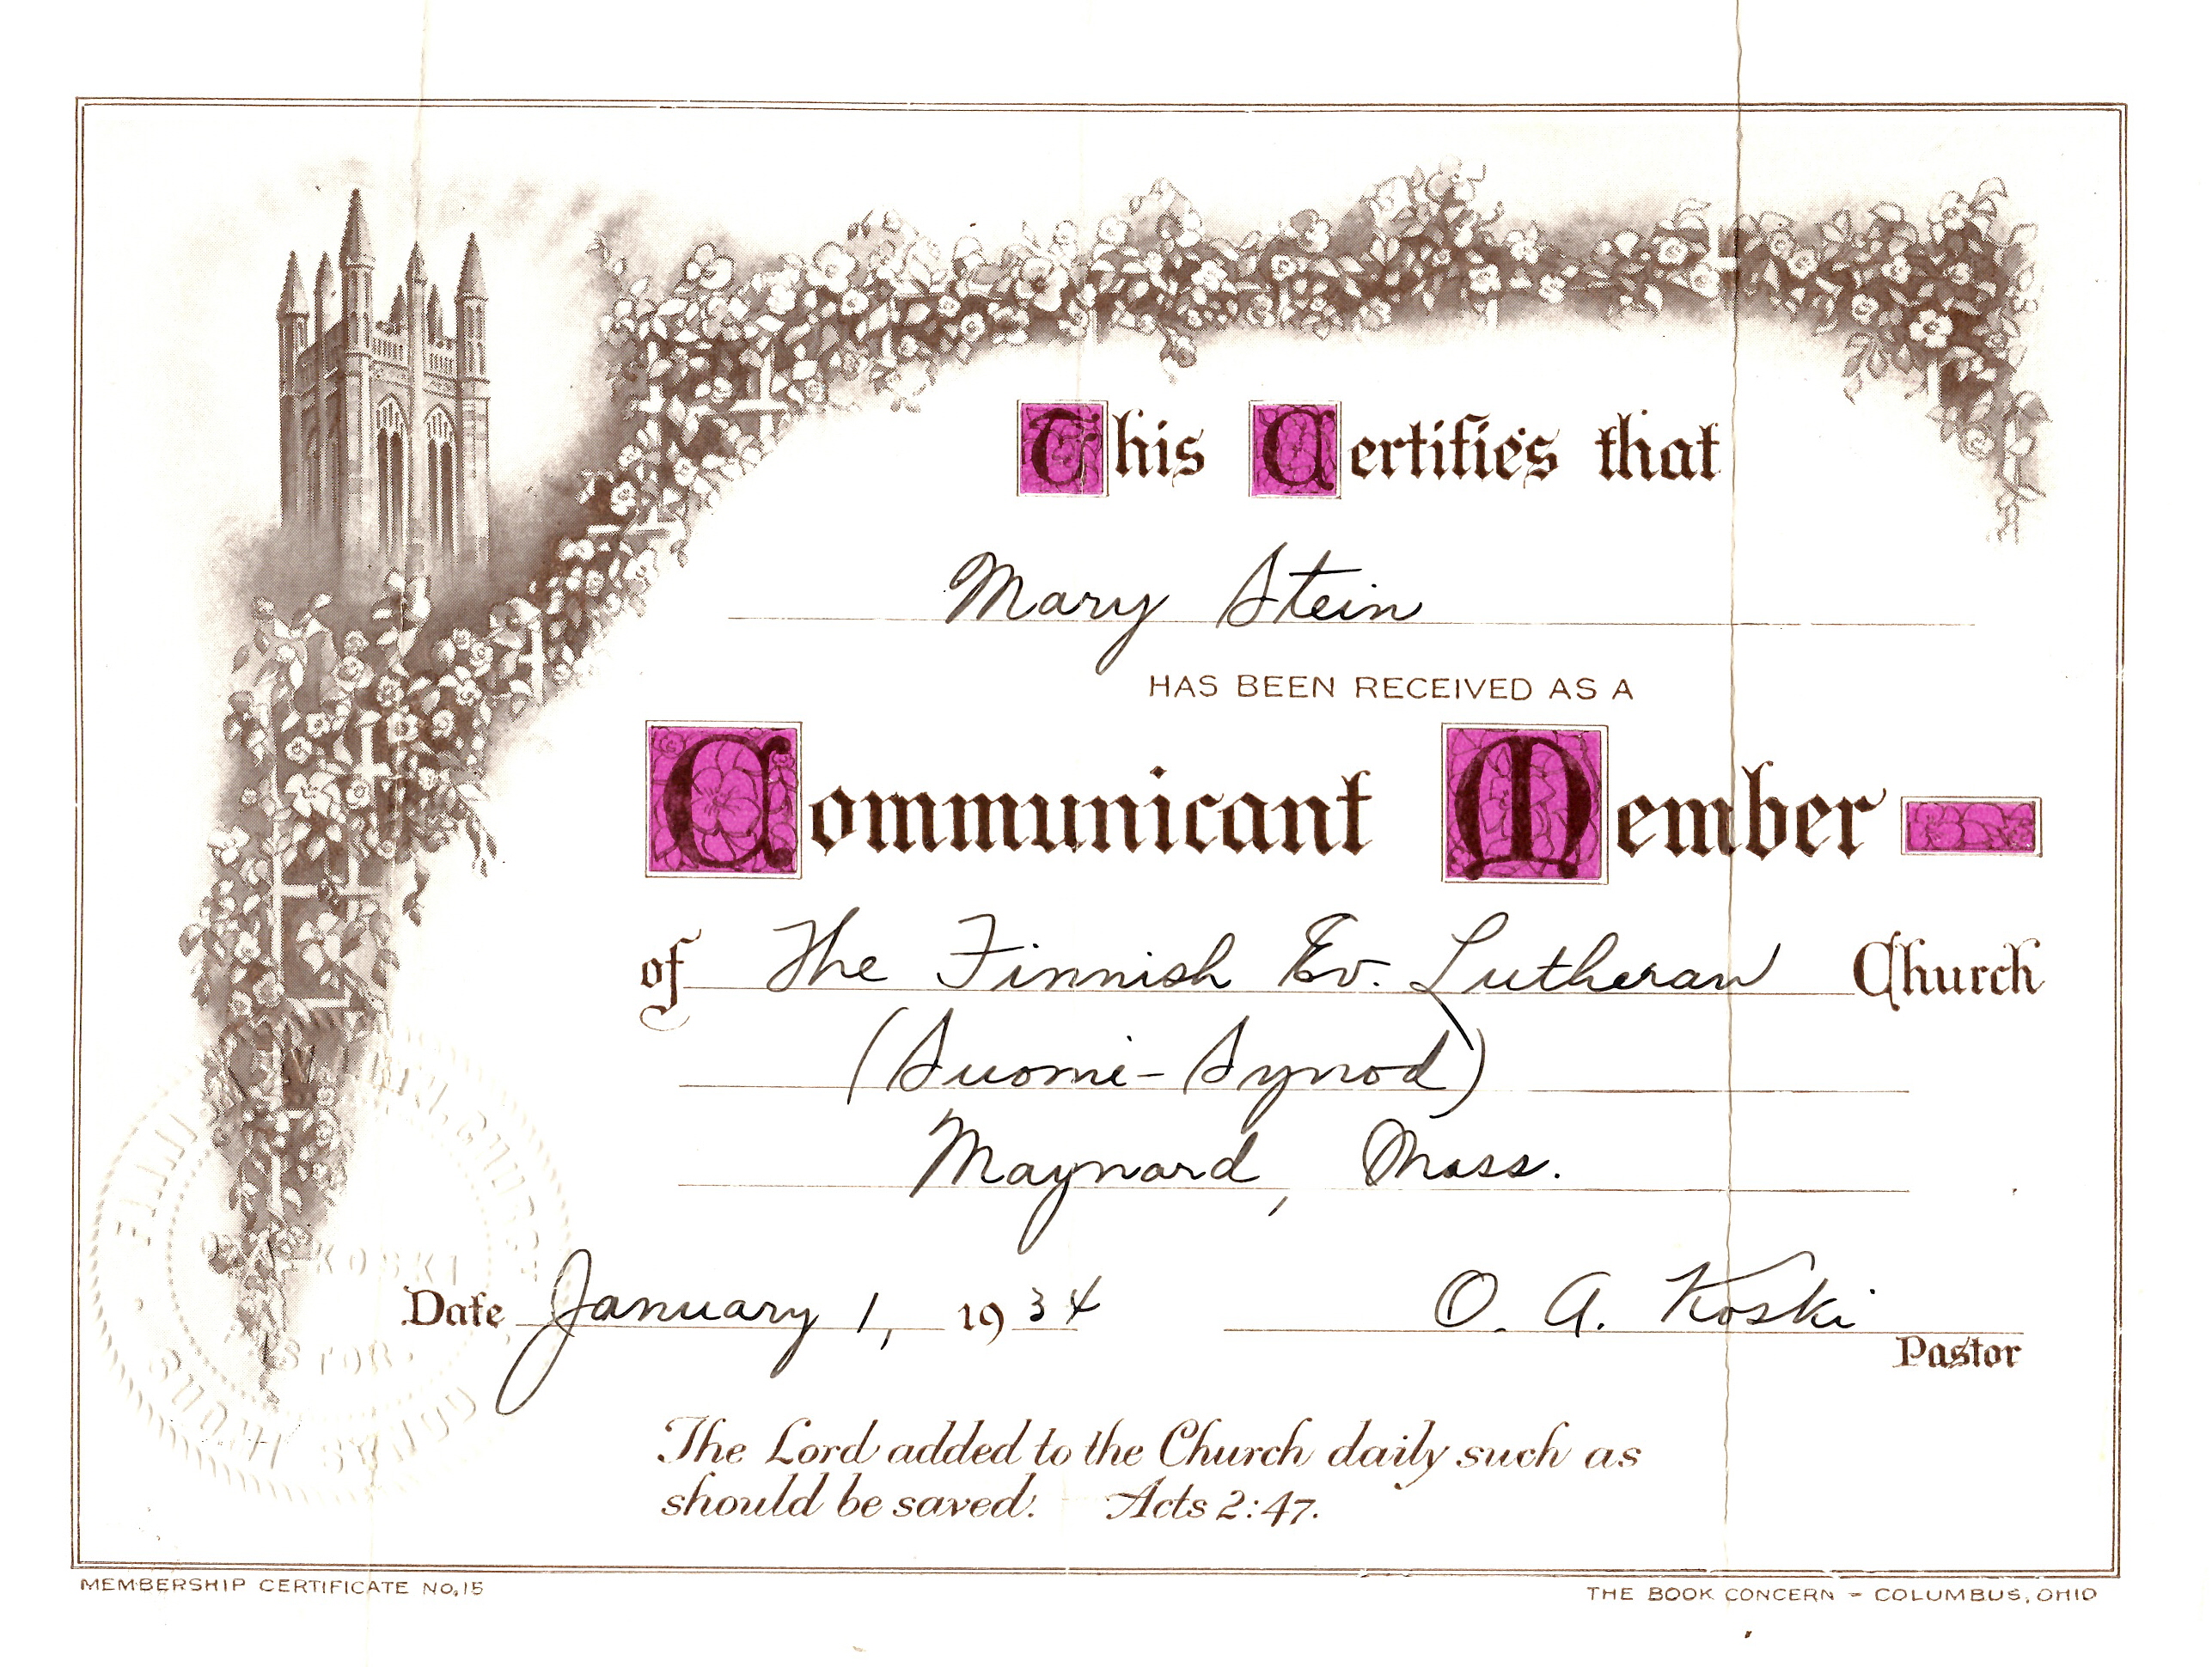 This Certifies that
Mary Stein
HAS BEEN RECEIVED AS A
Communicant Member
of The Finnish Ev. Lutheran Church
(Suomi-Synod)
Maynard, Mass.
Date January 1, 1934 O. A. Koski
Pastor
The Lord added to the Church daily such as
should be saved. Acts 2:47.
MEMBERSHIP CERTIFICATE NO. 15
THE BOOK CONCERN - COLUMBUS, OHIO
KOSKI
SUOMI SYNOD